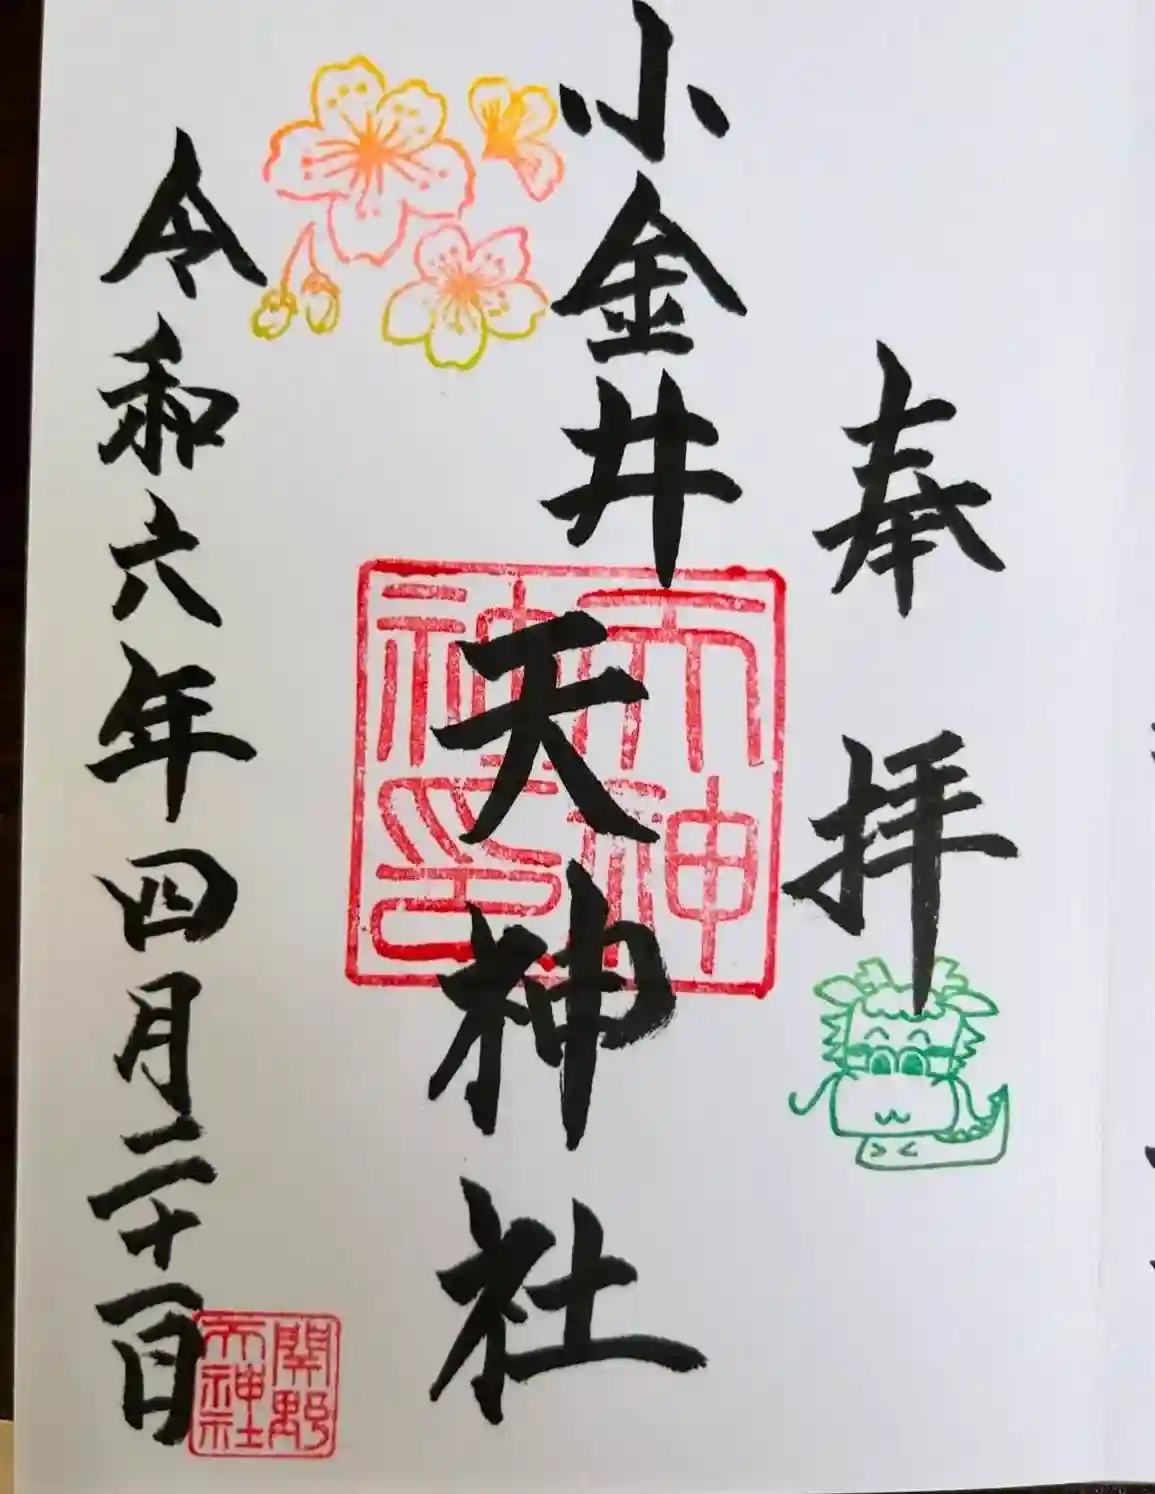 奉拝
小金井
天神社
令和六年四月二十一日
天神社印
関野天神社